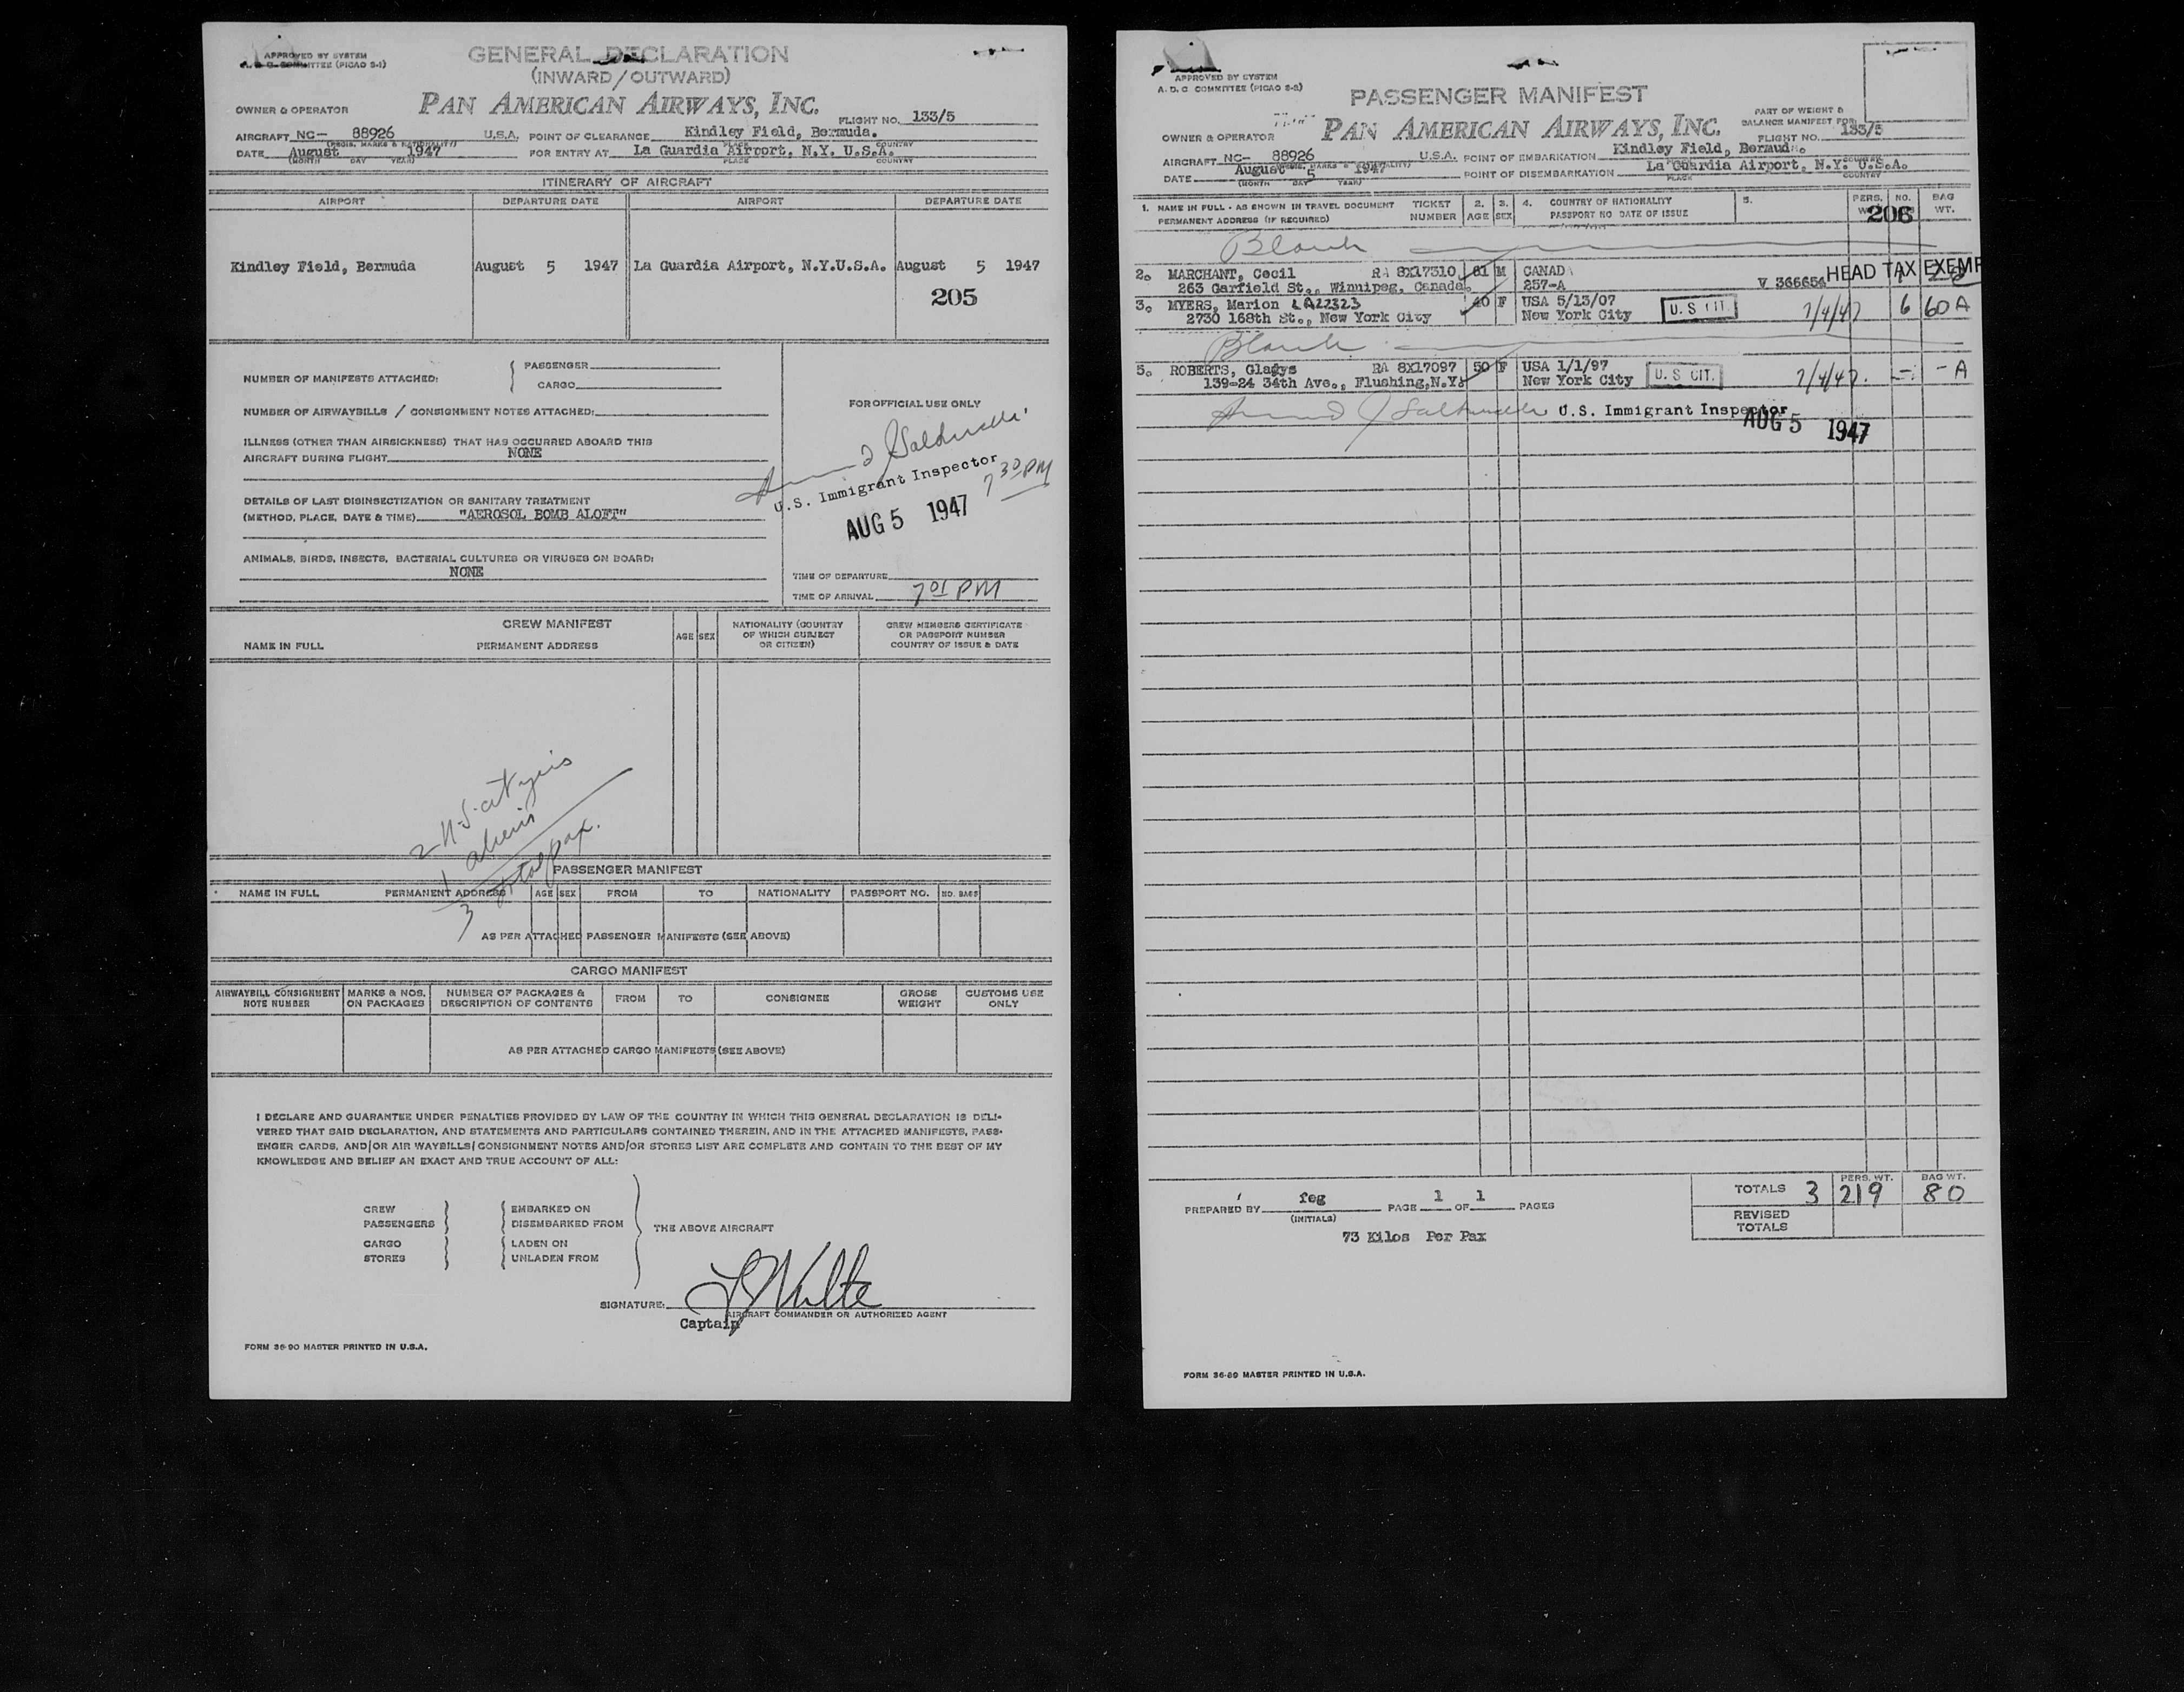 APPROVED BY SYSTEM
A. D. C. COMMITTEE (PICAO S-1)
GENERAL DECLARATION
(INWARD/OUTWARD)
OWNER & OPERATOR PAN AMERICAN AIRWAYS, INC. FLIGHT NO. 133/5
AIRCRAFT NC- 88926 U.S.A. POINT OF CLEARANCE Kindley Field, Bermuda.
(REGIS. MARKS & NATIONALITY) PLACE COUNTRY
DATE August 1947 FOR ENTRY AT La Guardia Airport, N.Y. U.S.A.
(MONTH DAY YEAR) PLACE COUNTRY
ITINERARY OF AIRCRAFT
AIRPORT DEPARTURE DATE AIRPORT DEPARTURE DATE
Kindley Field, Bermuda August 5 1947 La Guardia Airport, N.Y.U.S.A. August 5 1947
205
NUMBER OF MANIFESTS ATTACHED: PASSENGER
CARGO
NUMBER OF AIRWAYBILLS / CONSIGNMENT NOTES ATTACHED:
ILLNESS (OTHER THAN AIRSICKNESS) THAT HAS OCCURRED ABOARD THIS
AIRCRAFT DURING FLIGHT NONE
DETAILS OF LAST DISINSECTIZATION OR SANITARY TREATMENT
(METHOD, PLACE, DATE & TIME) "AEROSOL BOMB ALOFT"
ANIMALS, BIRDS, INSECTS, BACTERIAL CULTURES OR VIRUSES ON BOARD:
NONE
FOR OFFICIAL USE ONLY
U.S. Immigrant Inspector
7 30 PM
AUG 5 1947
TIME OF DEPARTURE
TIME OF ARRIVAL 7 01 PM
CREW MANIFEST
NAME IN FULL PERMANENT ADDRESS AGE SEX NATIONALITY (COUNTRY OF WHICH SUBJECT OR CITIZEN) CREW MEMBERS CERTIFICATE OR PASSPORT NUMBER COUNTRY OF ISSUE & DATE
1 aliens
3 total pax.
PASSENGER MANIFEST
NAME IN FULL PERMANENT ADDRESS AGE SEX FROM TO NATIONALITY PASSPORT NO. NO. BAGS
AS PER ATTACHED PASSENGER MANIFESTS (SEE ABOVE)
CARGO MANIFEST
AIRWAYBILL CONSIGNMENT NOTE NUMBER MARKS & NOS. ON PACKAGES NUMBER OF PACKAGES & DESCRIPTION OF CONTENTS FROM TO CONSIGNEE GROSS WEIGHT CUSTOMS USE ONLY
AS PER ATTACHED CARGO MANIFESTS (SEE ABOVE)
I DECLARE AND GUARANTEE UNDER PENALTIES PROVIDED BY LAW OF THE COUNTRY IN WHICH THIS GENERAL DECLARATION IS DELI-
VERED THAT SAID DECLARATION, AND STATEMENTS AND PARTICULARS CONTAINED THEREIN, AND IN THE ATTACHED MANIFESTS, PASS-
ENGER CARDS, AND/OR AIR WAYBILLS/CONSIGNMENT NOTES AND/OR STORES LIST ARE COMPLETE AND CONTAIN TO THE BEST OF MY
KNOWLEDGE AND BELIEF AN EXACT AND TRUE ACCOUNT OF ALL:
CREW EMBARKED ON
PASSENGERS DISEMBARKED FROM THE ABOVE AIRCRAFT
CARGO LADEN ON
STORES UNLADEN FROM
SIGNATURE:
AIRCRAFT COMMANDER OR AUTHORIZED AGENT
Captain
FORM 36-90 MASTER PRINTED IN U.S.A.
APPROVED BY SYSTEM
A. D. C COMMITTEE (PICAO S-2)
PASSENGER MANIFEST
PART OF WEIGHT &
BALANCE MANIFEST FOR
OWNER & OPERATOR PAN AMERICAN AIRWAYS, INC. FLIGHT NO. 133/5
AIRCRAFT NC- 88926 U.S.A. POINT OF EMBARKATION Kindley Field, Bermuda
DATE August 5 1947 POINT OF DISEMBARKATION La Guardia Airport, N.Y. U.S.A.
(MONTH DAY YEAR) PLACE COUNTRY
1. NAME IN FULL - AS SHOWN IN TRAVEL DOCUMENT TICKET 2. 3. 4. COUNTRY OF NATIONALITY 5. PERS. NO. BAG
PERMANENT ADDRESS (IF REQUIRED) NUMBER AGE SEX PASSPORT NO DATE OF ISSUE WT.
206
Blank
2. MARCHANT, Cecil RA 8X17310 61 M CANADA
263 Garfield St., Winnipeg, Canada. 257-A V 366656 HEAD TAX EXEMP
3. MYERS, Marion LA22323 40 F USA 5/13/07
2730 168th St., New York City New York City U.S CIT. 7/4/47 6 60 A
Blank
5. ROBERTS, Gladys RA 8X17097 50 F USA 1/1/97
139-24 34th Ave., Flushing,N.Y. New York City U.S CIT. 7/4/47. - - A
U.S. Immigrant Inspector
AUG 5 1947
PREPARED BY feg PAGE 1 OF 1 PAGES
(INITIALS)
73 Kilos Per Pax
PERS. WT. BAG WT.
TOTALS 3 219 80
REVISED TOTALS
FORM 36-89 MASTER PRINTED IN U.S.A.